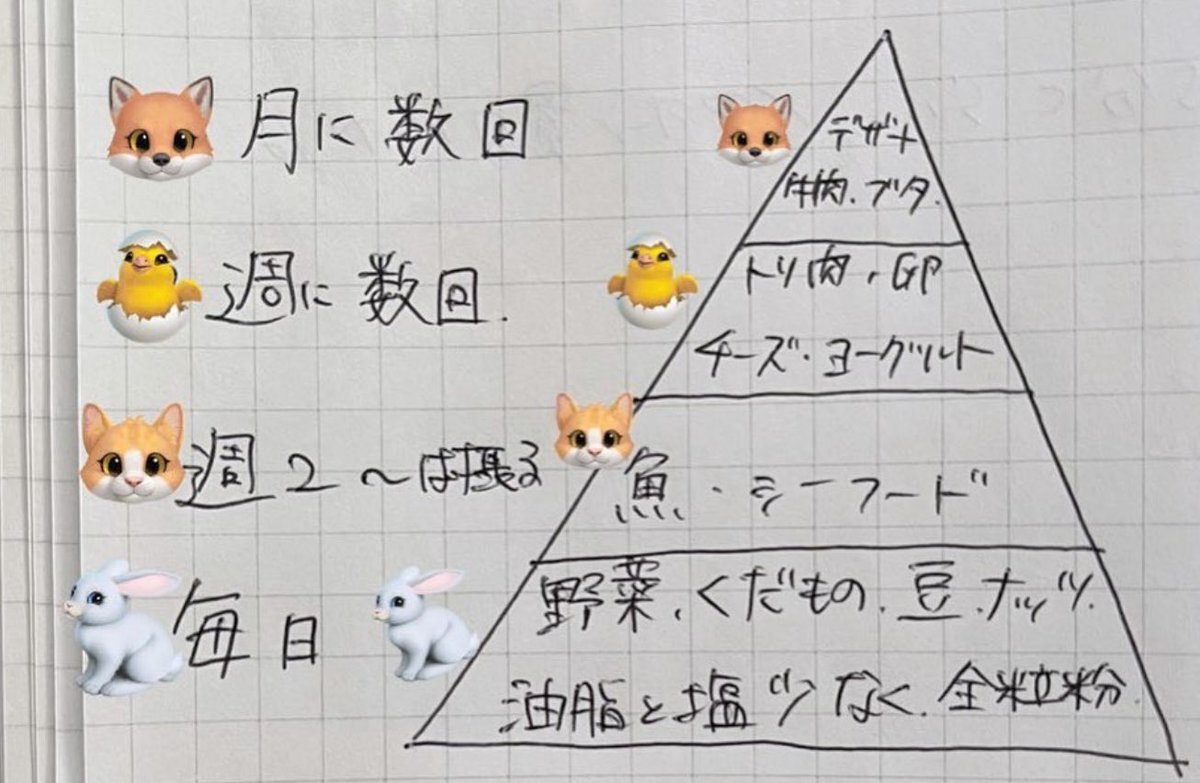 月に数回
デザート
牛肉.ブタ.
週に数回.
トリ肉.GP
チーズ・ヨーグルト
週2〜は摂る
魚・シーフード
毎日
野菜.くだもの.豆.ナッツ.
油脂と塩少なく.全粒粉.